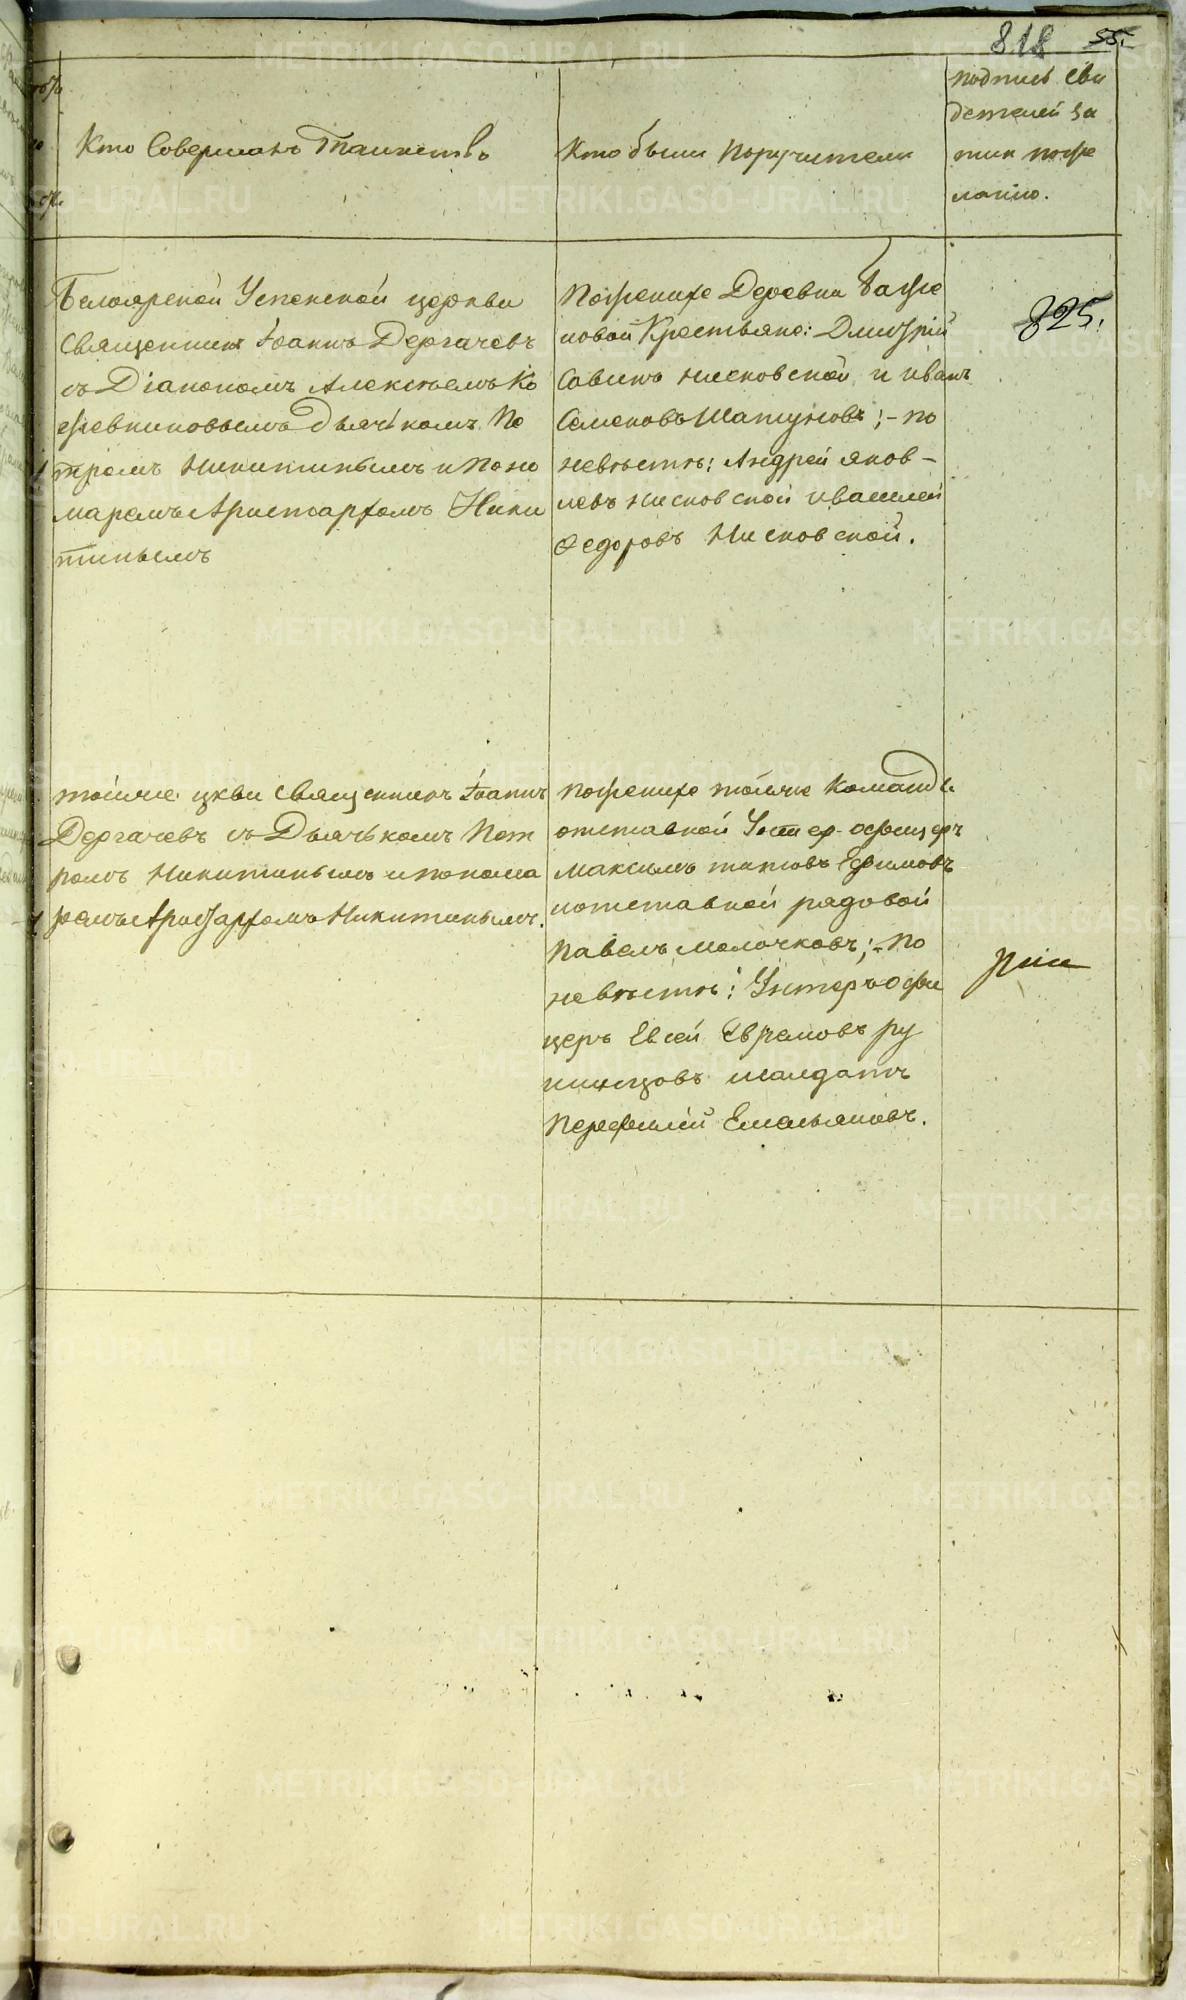 818 55.
Кто Совершалъ Таинство
Кто были Поручители
подпись сви
детелей за
пии по же
ланию.
Белоярской Успенской церкви
священник Іоаннъ Дергачевъ
съ Діакономъ Алексѣемъ Ко
жевниковымъ Дьячкомъ Пе
тромъ Никитинымъ и Поно
маремъ Аристархомъ Ники
тинымъ
Поженихе Деревни Баже
новой Крестьяне: Дмитрій
Савинъ Нисковской и иванъ
Семеновъ Шатуновъ; - по
невѣсте: Андрей яков-
левъ Нисковской и василей
Федоровъ Нисковской.
825.
тойже цкви священникъ Іоаннъ
Дергачевъ съ Дьячькомъ Пет
ромъ Никитинымъ и понома
ремъ Аристархомъ Никитинымъ.
поженихе тойже Команды
отставной Унтер-офицеръ
Максимъ титовъ Ефимовъ
и отставной рядовой
Павелъ Молочковъ; - По
невѣсте: Унтеръ-офи
церъ Евсей Ефремовъ ру
и салдатъ
Перфилий Емельяновъ.
METRIKI.GASO-URAL.RU